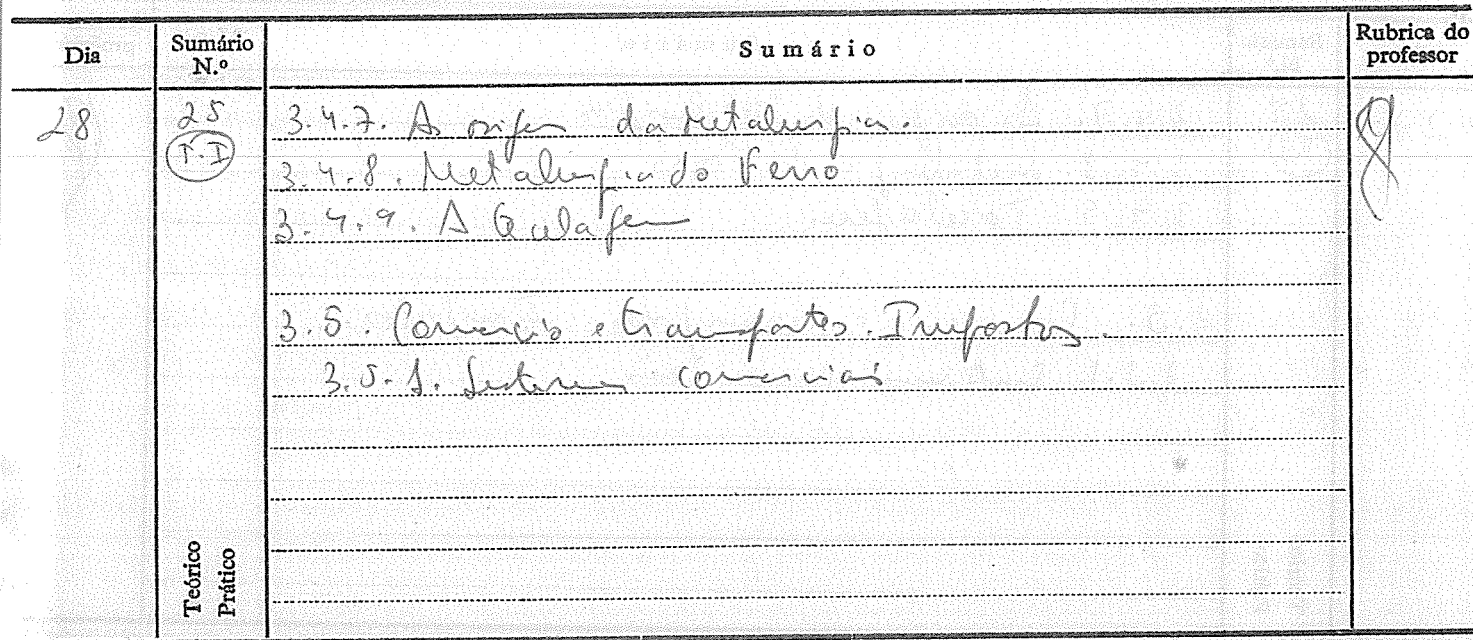 Dia Sumário N.º Sumário Rubrica do professor
28 25 3.4.7. As origens da Metalurgia.
T.P 3.4.8. Metalurgia do Ferro
3.4.9. A
3.5. Comércio e transportes. Impostos.
3.5.1. Sistemas comerciais
Teórico
Prático